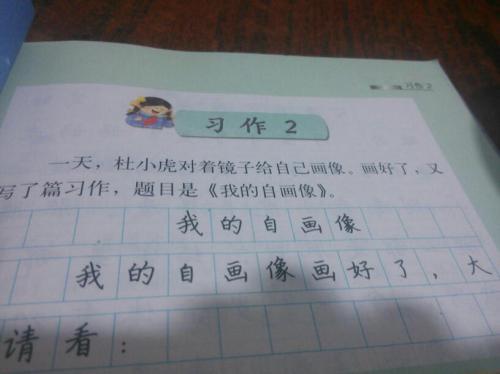 习作 2
习作 2
一天，杜小虎对着镜子给自己画像。画好了，又
写了篇习作，题目是《我的自画像》。
我的自画像
我的自画像画好了，大
请看：